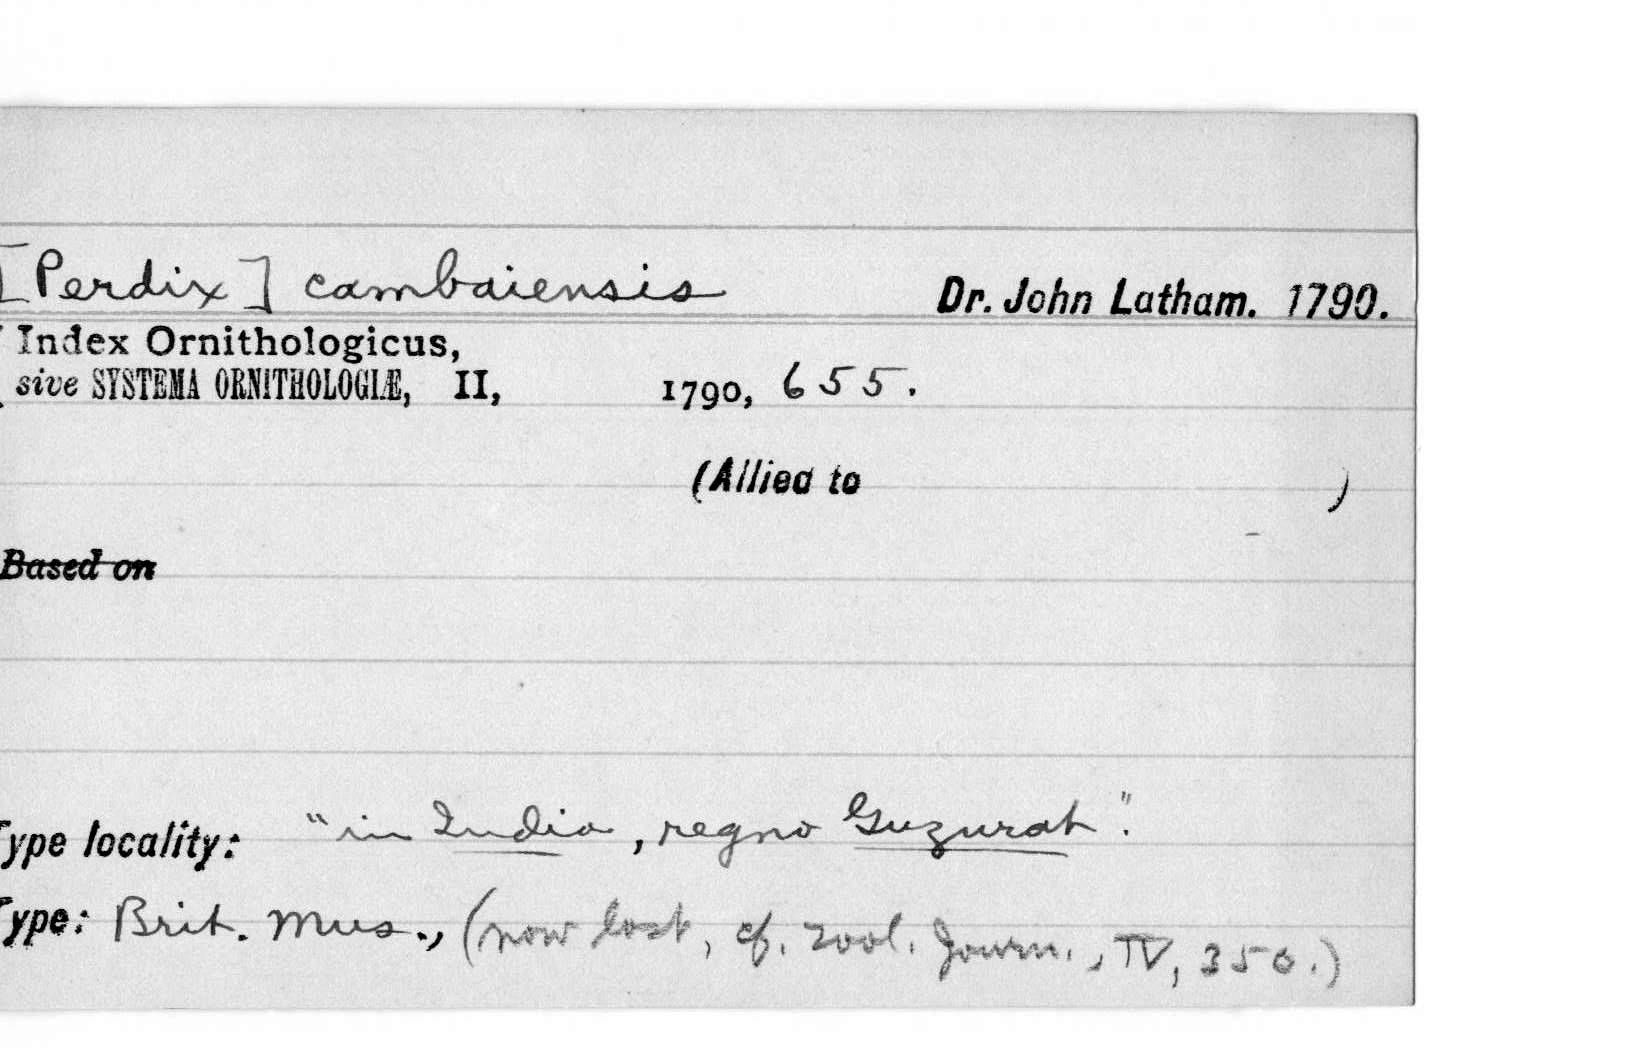 [Perdix] cambaiensis Dr. John Latham. 1790.
Index Ornithologicus,
sive SYSTEMA ORNITHOLOGIÆ, II, 1790, 655.
(Allied to )
Based on
Type locality: "in India, regno Guzurat".
Type: Brit. Mus., (now lost, cf. Zool. Journ., IV, 350.)